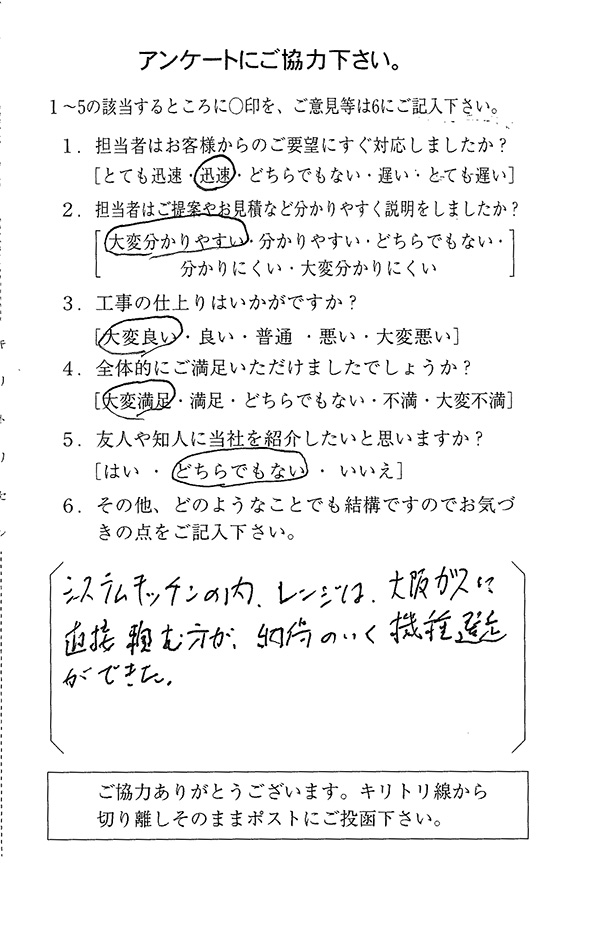 アンケートにご協力下さい。
1～5の該当するところに〇印を、ご意見等は6にご記入下さい。
1．担当者はお客様からのご要望にすぐ対応しましたか？
[とても迅速・迅速・どちらでもない・遅い・とても遅い]
2．担当者はご提案やお見積など分かりやすく説明をしましたか？
[大変分かりやすい・分かりやすい・どちらでもない・
分かりにくい・大変分かりにくい]
3．工事の仕上りはいかがですか？
[大変良い・良い・普通・悪い・大変悪い]
4．全体的にご満足いただけましたでしょうか？
[大変満足・満足・どちらでもない・不満・大変不満]
5．友人や知人に当社を紹介したいと思いますか？
[はい・どちらでもない・いいえ]
6．その他、どのようなことでも結構ですのでお気づ
きの点をご記入下さい。
システムキッチンの内、レンジは、大阪ガスに
直接頼む方が、納得のいく機種選定
ができた。
ご協力ありがとうございます。キリトリ線から
切り離しそのままポストにご投函下さい。